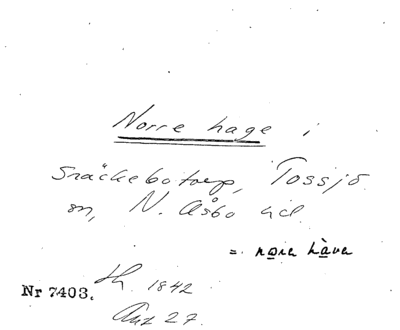 Norre hage i
Snäckebotorp, Tossjö
sn, N. Åsbo hd.
= nora hàva
Nr 7403.
Lh. 1842
Aut 27.